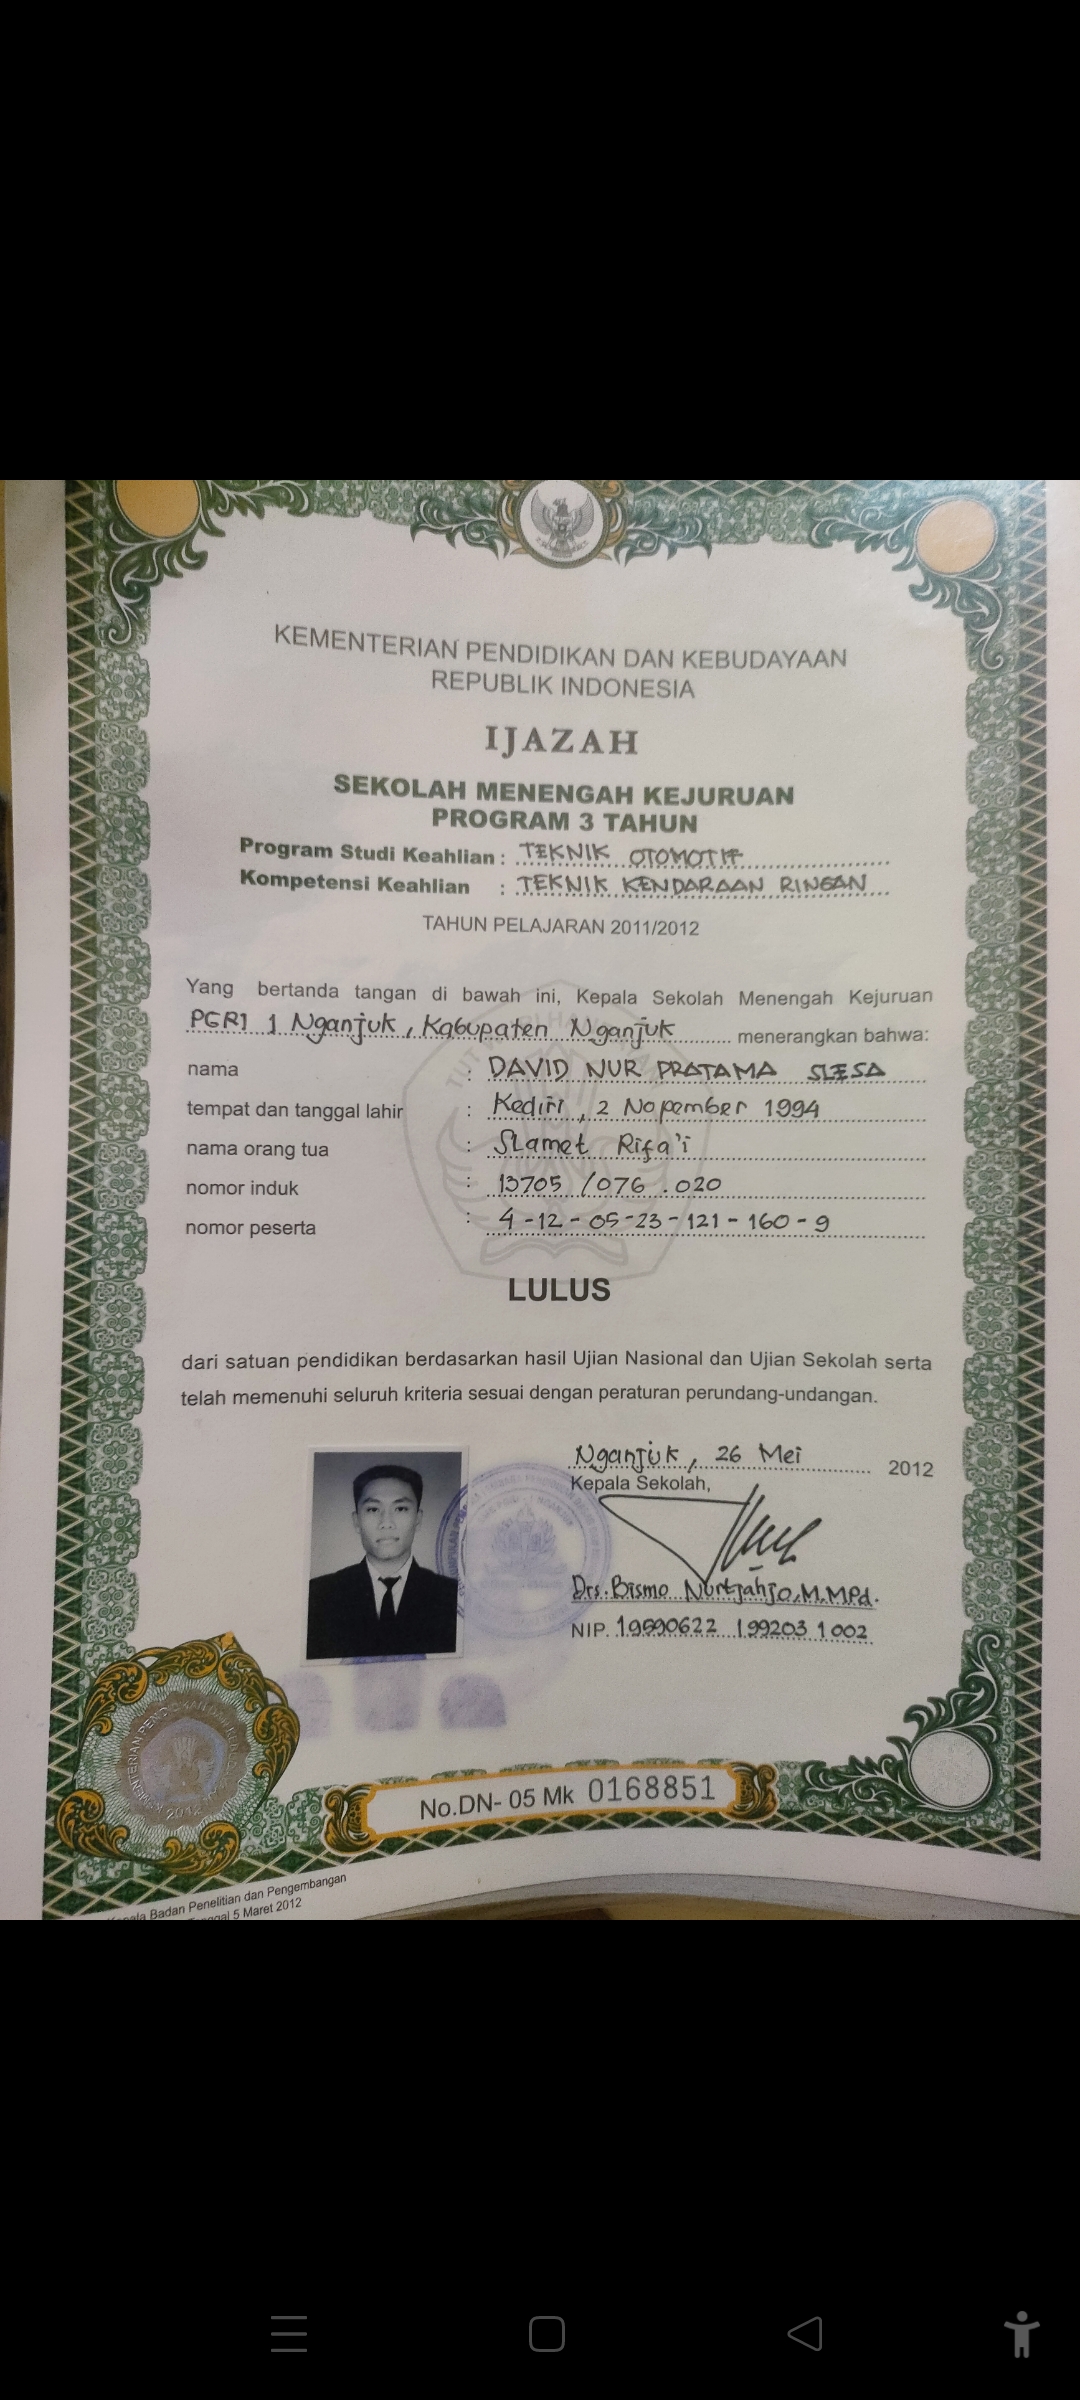 KEMENTERIAN PENDIDIKAN DAN KEBUDAYAAN
REPUBLIK INDONESIA
IJAZAH
SEKOLAH MENENGAH KEJURUAN
PROGRAM 3 TAHUN
Program Studi Keahlian : TEKNIK OTOMOTIF
Kompetensi Keahlian : TEKNIK KENDARAAN RINGAN
TAHUN PELAJARAN 2011/2012
Yang bertanda tangan di bawah ini, Kepala Sekolah Menengah Kejuruan
PGRI 1 Nganjuk, Kabupaten Nganjuk menerangkan bahwa:
nama : DAVID NUR PRATAMA SLESA
tempat dan tanggal lahir : Kediri, 2 Nopember 1994
nama orang tua : SLamet Rifa'i
nomor induk : 13705 /076 .020
nomor peserta : 4-12-05-23-121-160-9
LULUS
dari satuan pendidikan berdasarkan hasil Ujian Nasional dan Ujian Sekolah serta
telah memenuhi seluruh kriteria sesuai dengan peraturan perundang-undangan.
Nganjuk, 26 Mei 2012
Kepala Sekolah,
Drs. Bismo Nurtjahjo, M.MPd.
NIP. 19590622 199203 1 002
KEMENTERIAN PENDIDIKAN DAN
2012
No.DN- 05 Mk 0168851
Badan Penelitian dan Pengembangan
5 Maret 2012